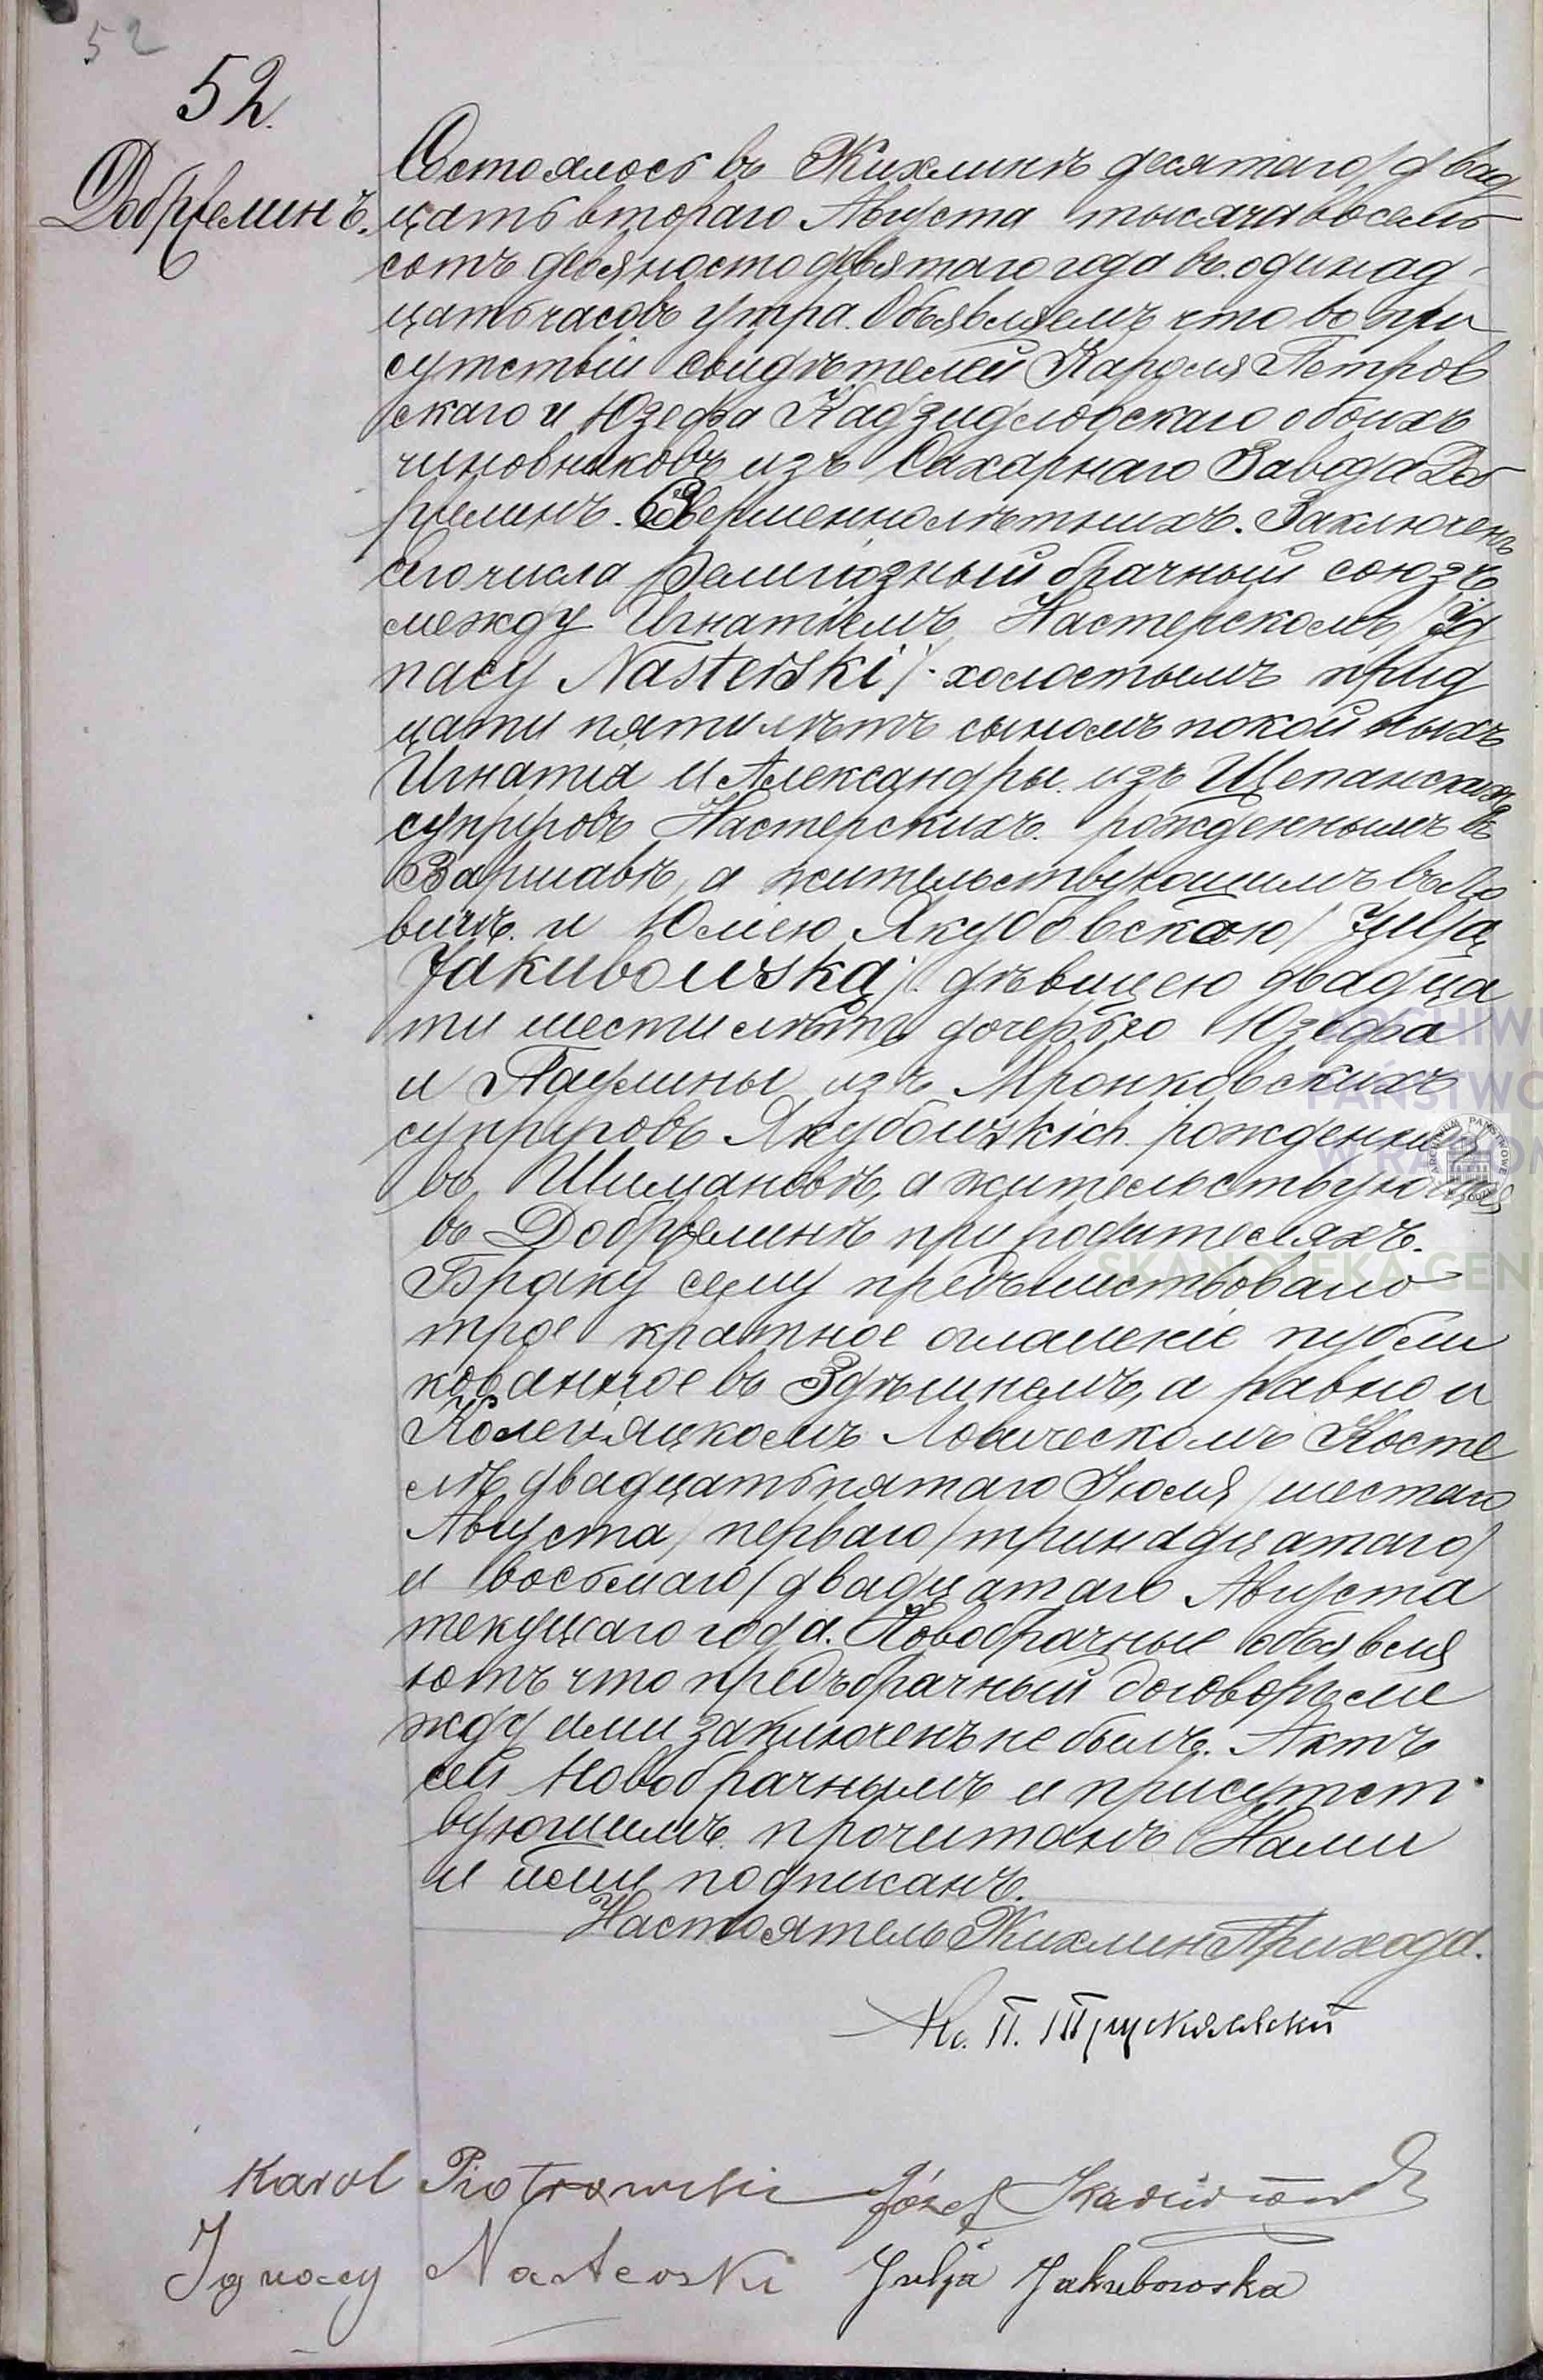 52
52.
Добржелинъ.
Состоялось въ Жихлинѣ десятаго/двад
цать втораго Августа тысяча восемь
сотъ девяносто девятаго года въ одинад-
цать часовъ утра. Объявляемъ что во при
сутствіи свидѣтелей Кароля Петров
скаго и Юзефа Кадзидловскаго обоихъ
чиновниковъ изъ Сахарнаго Завода Доб
ржелинъ. Совершеннолѣтнихъ. Заключенъ
сего числа Религіозный брачный союзъ
между Игнатіемъ Настерскомъ /Ig
nacy Nasterski/ холостымъ трид
цати пяти лѣтъ сыномъ покойныхъ
Игнатія и Александры изъ Щепанскихъ
супруговъ Настерскихъ рожденнымъ въ
Варшавѣ, а жительствующимъ въ Ло
вичѣ и Юліею Якубовскою /Julją
Jakubowską/ дѣвицею двадца
ти шести лѣтъ дочерью Юзефа
и Паулины изъ Мронковскихъ
супруговъ Якубоwskich рожденною
въ Шимановѣ, а жительствующею
въ Добржелинѣ при родителяхъ.
Браку сему предъшествовало
трое кратное оглашеніе публи
кованное въ Здѣшнемъ, а равно и
Колегіяцкомъ Ловическомъ Косте
лѣ двадцать пятаго Іюля /шестаго
Августа/ перваго /тринадцатаго/
и восьмаго /двадцатаго Августа
текущаго года. Новобрачные объявля
ютъ что предъбрачный договоръ ме
жду ими заключенъ не былъ. Актъ
сей Новобрачнымъ и присутст
вующимъ прочитанъ Нами
и ими подписанъ.
Настоятель Жихлин Прихода.
Кс. П.
Karol Piotrowski Józef
Ignacy Nasterski Julja Jakubowska
ARCHIWU
PAŃSTWO
W RADOM
SKANOTEKA.GEN